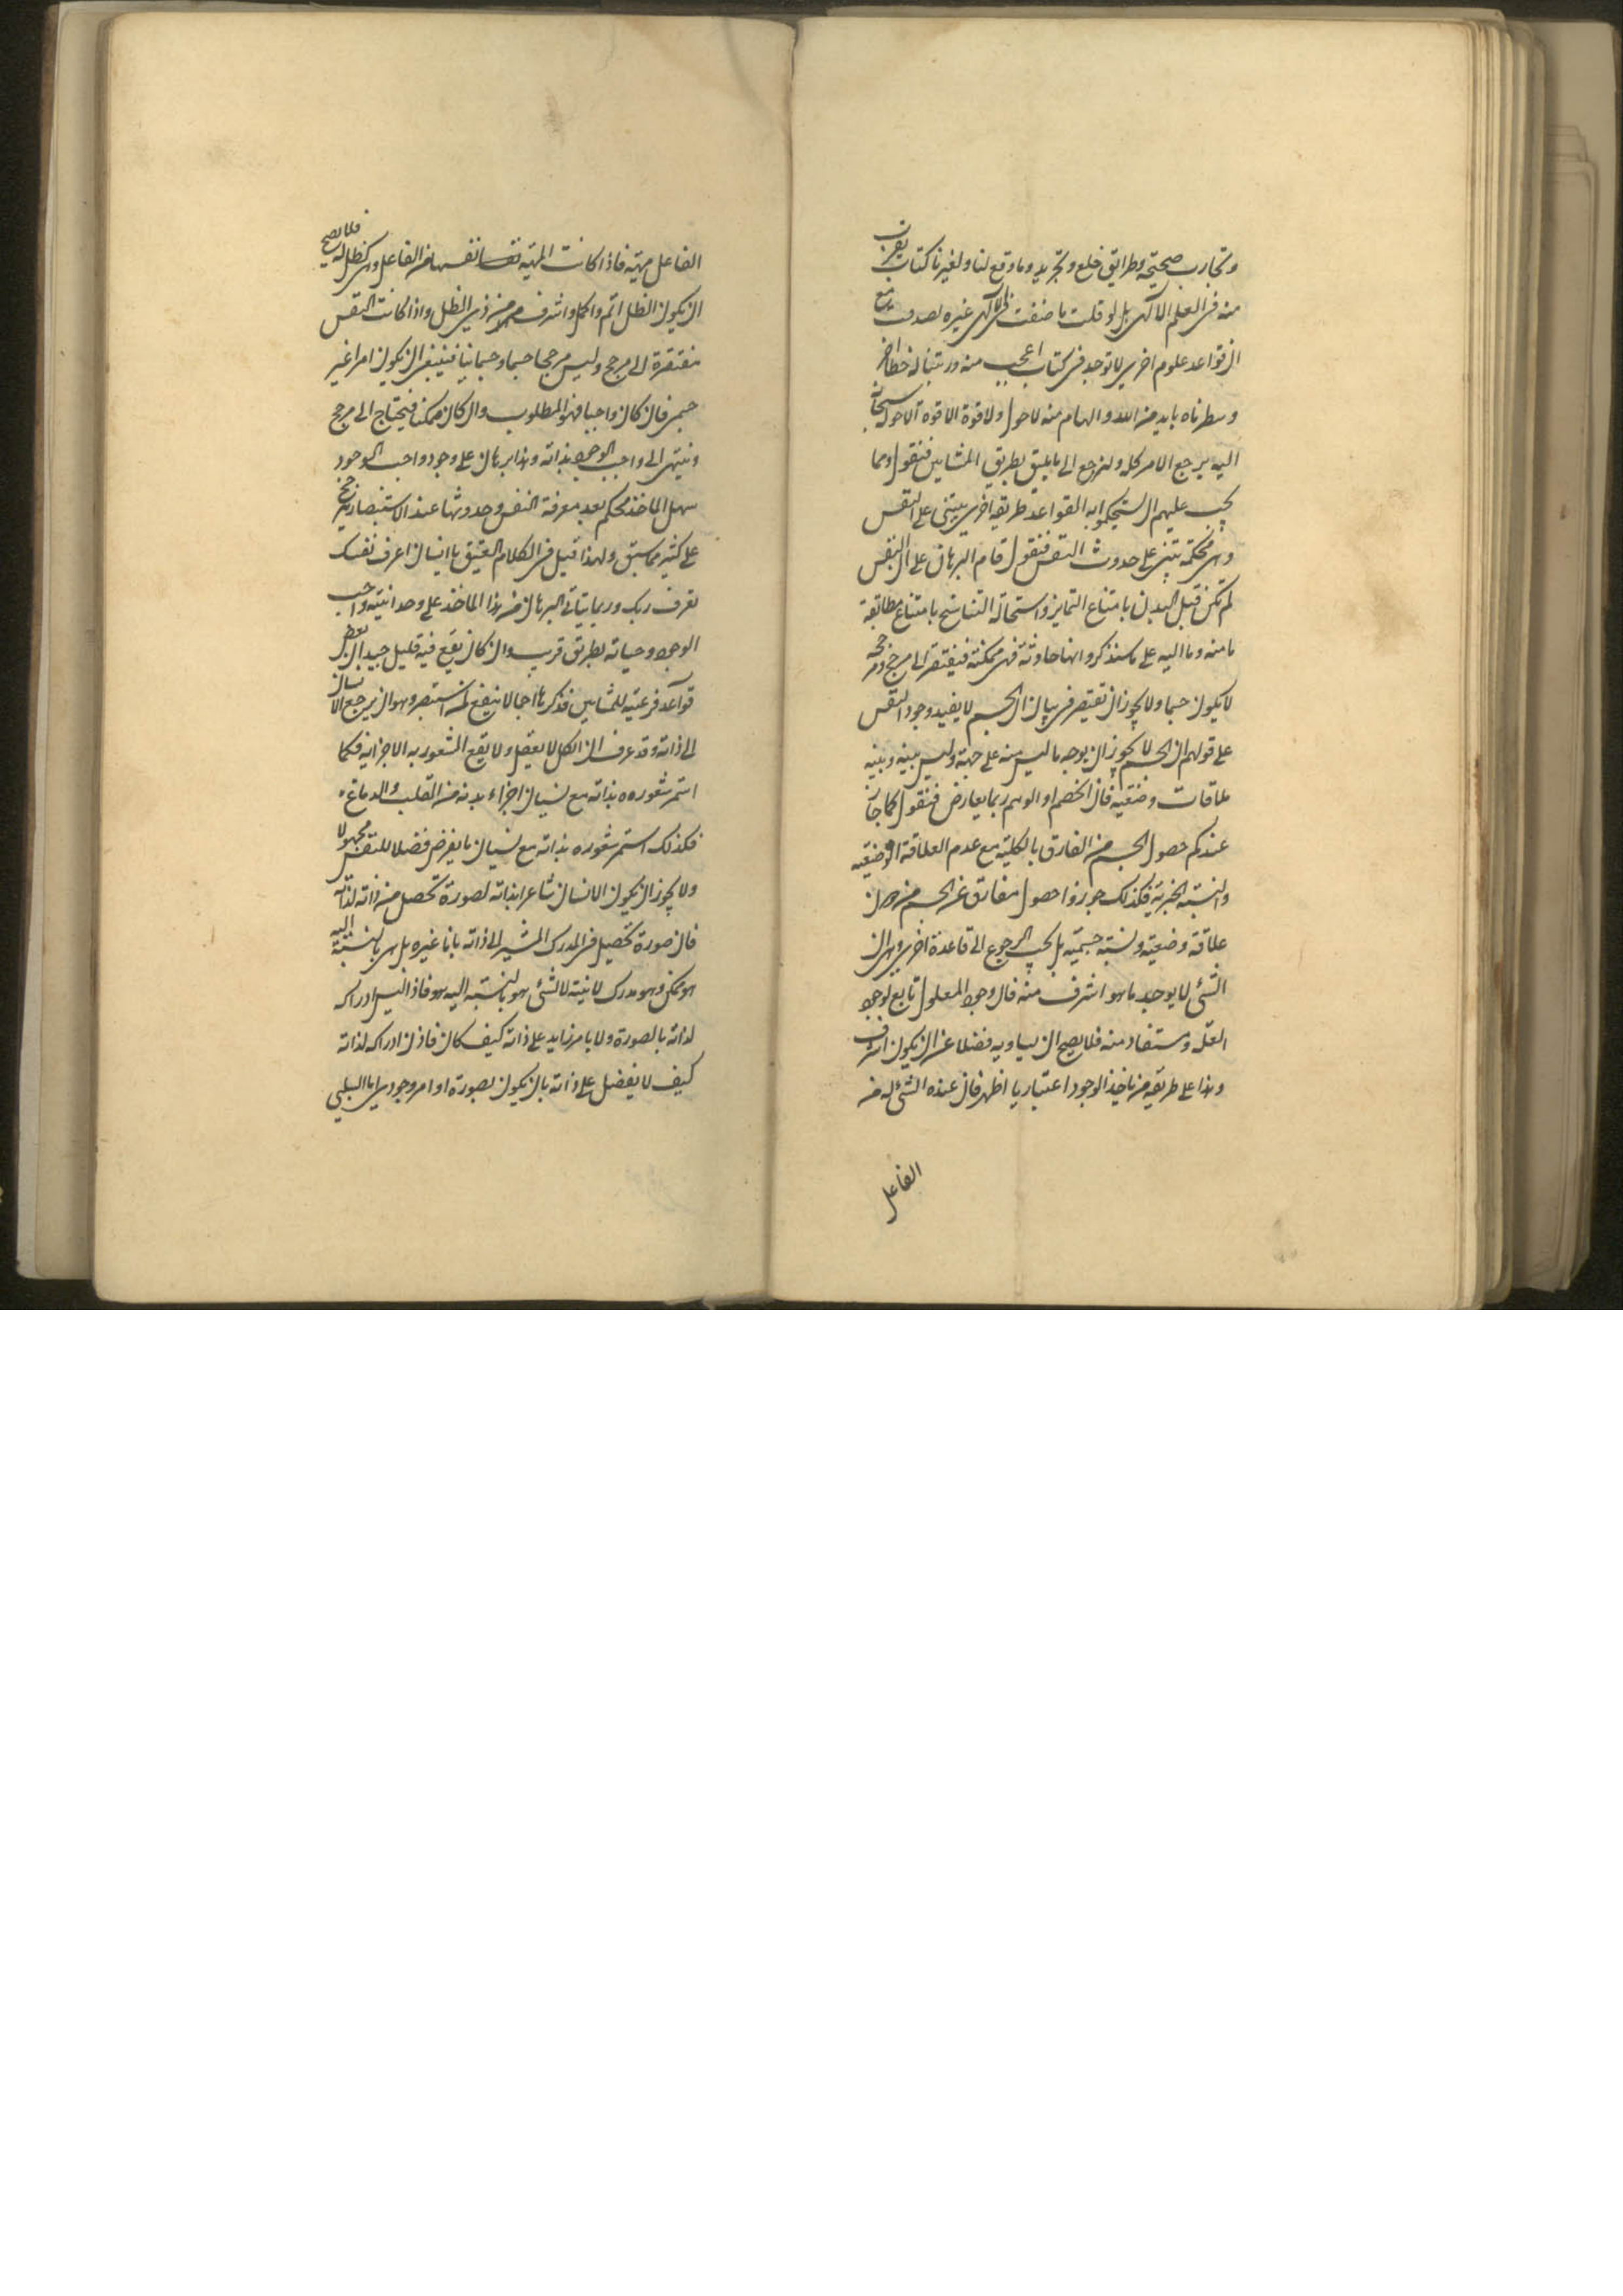 وتجارب صحيحة وطرايق خلع وتجريد وما وقع لنا ولغيرنا كتاب يقرب
منه فى العلم الالهى بل لو قلت ما صنفت فى الالهى غيره لصدقت مع
ان قواعد علوم اخرى لا توجد فى كتاب اعجب منه ورتبناه
وسطرناه بايد من الله والهام منه لا حول ولا قوة الا حوله سبحانه
اليه يرجع الامر كله ولنرجع الى ما يليق بطريق المشايين فنقول ومما
يجب عليهم ان يستحكموا به القواعد طريقة اخرى يبتنى على النفس
وهى محكمة تبتنى على حدوث النفس فنقول قام البرهان على ان النفس
لم تكن قبل البدن بامتناع التمايز واستحالة التناسخ بامتناع مطابقة
ما منه وما اليه على ما سنذكر وانها حادثة فهى ممكنة فيفتقر الى مرجح ومرجحه
لا يكون جسما ولا يجوز ان تقتصر فى بيان ان الجسم لا يفيد وجود النفس
على قولهم ان الجسم لا يجوز ان يوجد ما ليس منه على جهة وليس بينه وبينه
علاقات وضعيه فان الخصم او الوهم ربما يعارض فنقول كما جاز
عندكم حصول الجسم من المفارق بالكلية مع عدم العلاقة الوضعيه
والنسبة فكذلك جوزوا حصول مفارق عن الجسم من دون
علاقة وضعيه ونسبة جسمية بل يجب الرجوع الى قاعدة اخرى وهى ان
الشئ لا يوجد ما هو اشرف منه فان وجود المعلول تابع لوجود
العلة ومستفاد منه فلا يصح ان يساويه فضلا عن ان يكون اشرف
وهذا على طريقة من ياخذ الوجود اعتباريا اظهر فان عنده الشئ له من
الفاعل
الفاعل مهيته فاذا كانت المهية نفسها من الفاعل وهى كظل له فلا يصح
ان يكون الظل اتم واكمل واشرف من ذى الظل واذا كانت النفس
مفتقرة الى مرجح وليس مرجحها جسما وجسمانيا فينبغى ان يكون امرا غير
جسمى فان كان واجبا فهو المطلوب وان كان ممكنا فيحتاج الى مرجح
وينتهى الى واجب الوجود بذاته وهذا برهان على وجود واجب الوجود
سهل الماخذ محكم بعد معرفة النفس وحدوثها عند الاستبصار يرجح
على كثير مما سبق ولهذا قيل فى الكلام العتيق يا انسان اعرف نفسك
تعرف ربك وربما يتاتى البرهان من هذا الماخذ على وحدانيته واجب
الوجود وحياته بطريق قريب وان كان يقع فيه قليل حيد الى بعض
قواعد فرعية للمشايين فذكرها اجمالا ينفع لمن استبصر وهو ان يرجع الانسان
الى ذاته وقد عرف ان الكل لا يعقل ولا يقع الشعور به الا باجزايه فكما
استمر شعوره بذاته مع نسيان اجزاء بدنه من القلب والدماغ
فكذلك استمر شعوره بذاته مع نسيان ما يفرض فصلا للنفس مجهولا
ولا يجوز ان يكون الانسان شاعرا بذاته لصورة تحصل من ذاته لذاته
فان صورة تحصل فى المدرك المشير الى ذاته بانا غيره بل هى بالنسبة اليه
هو ممكن وهو مدرك لانيته لا لشئ هو بالنسبة اليه هو فاذا ليس ادراكه
لذاته بالصورة ولا بامر زايد على ذاته كيف كان فاذن ادراكه لذاته
كيف لا يفضل على ذاته بان يكون بصورة او امر وجودى